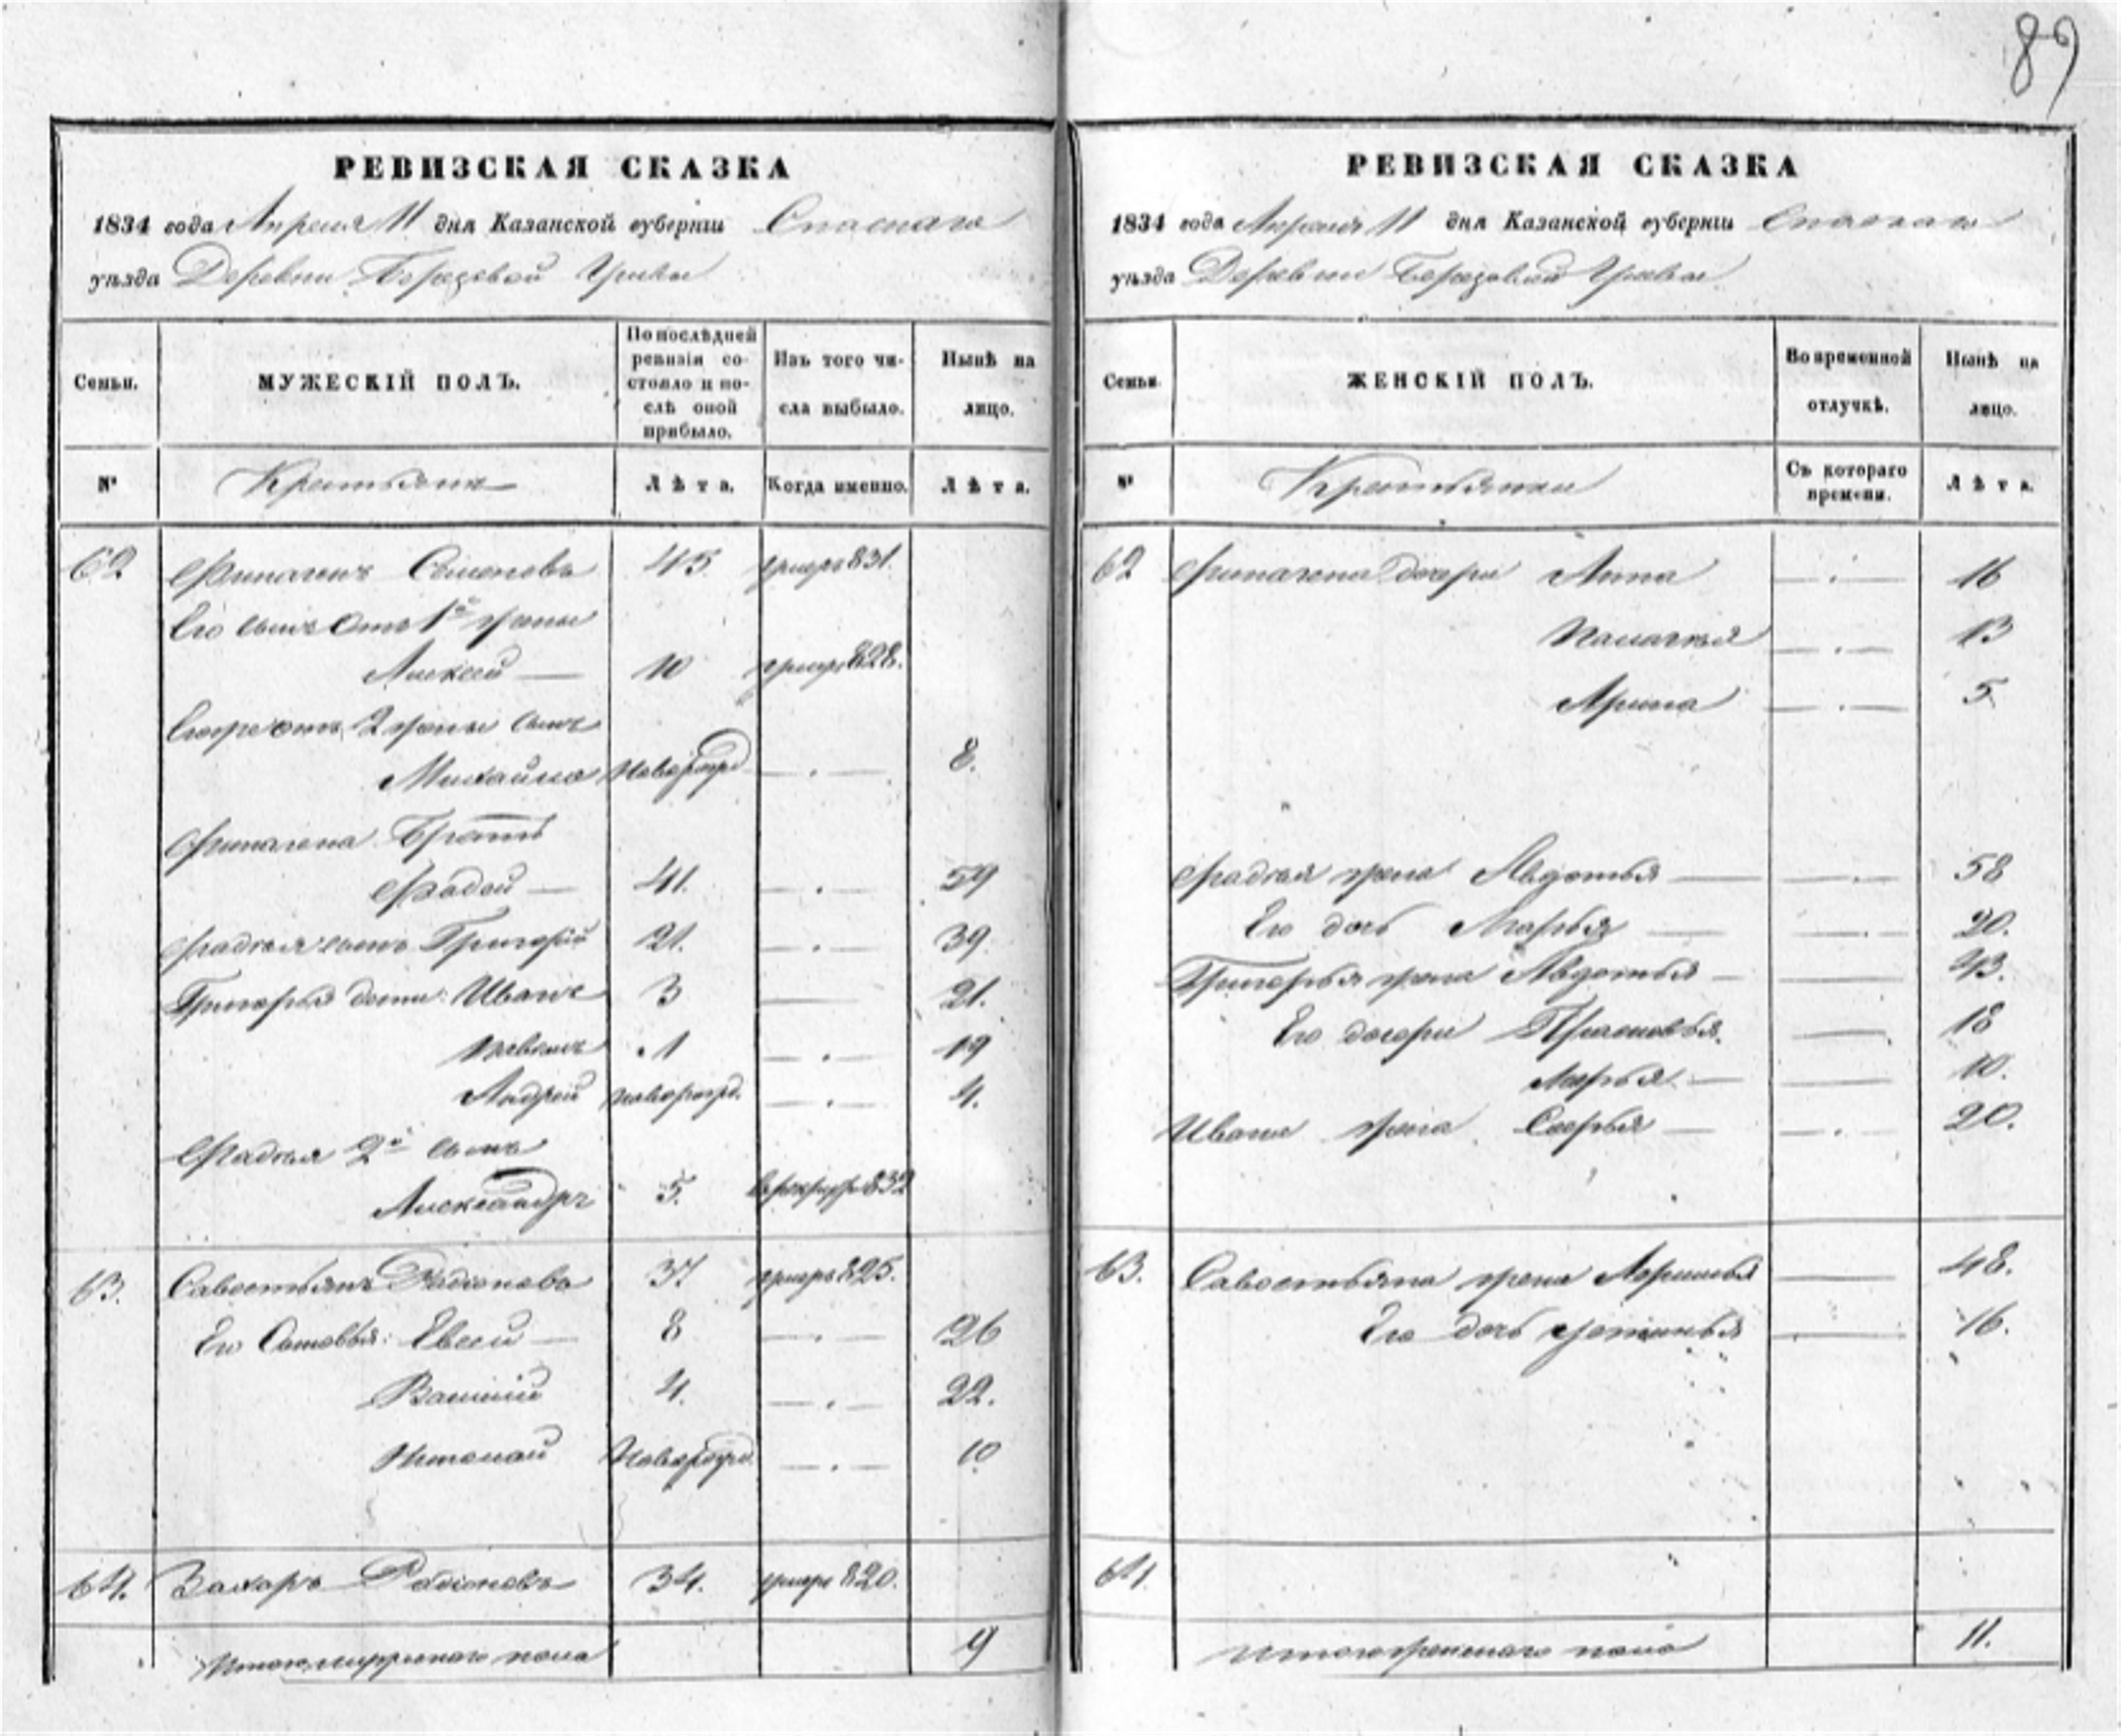 89
РЕВИЗСКАЯ СКАЗКА
1834 года Апреля 11 дня Казанской губернии Спаскаго
уѣзда Деревни Березовой Гривы
Семьи. МУЖЕСКІЙ ПОЛЪ. По послѣдней ревизіи состояло и послѣ оной прибыло. Изъ того числа выбыло. Нынѣ на лицо.
№ Крестьяне Лѣта. Когда именно. Лѣта.
62 Семеновъ 45 умеръ 831.
Его сынъ отъ 1й жены
Алексей 10 умеръ 828.
Егоже отъ 2 жены сынъ
Михайла новорожд 8.
братъ
Фадей 41. 59
Фадея сынъ Григорій 21. 39.
Григорья дети: Иванъ 3 21.
1 19
Андрей новорожд. 4.
Фадея 2й сынъ
Александръ 5. в рекруты 832
63. Савостьянъ Радіоновъ 37 умеръ 825.
Его Сыновья: Евсей 8 26
Василій 4. 22.
Новорожд. 10
64. Захаръ Радіоновъ 34. умеръ 820.
Итого мужескаго пола 9
РЕВИЗСКАЯ СКАЗКА
1834 года Апреля 11 дня Казанской губернии Спаскаго
уѣзда Деревни Березовой Гривы
Семьи. ЖЕНСКІЙ ПОЛЪ. Во временной отлучкѣ. Нынѣ на лицо.
№ Крестьянки Съ котораго времени. Лѣта.
62 дочери Анна 16
13
Арина 5.
Фадея жена Авдотья 58
Его дочь Марья 20.
Григорья жена Авдотья 43.
Его дочери Прасковья. 18
Марья 10.
Ивана жена 20.
63. Савостьяна жена 48.
Его дочь 16.
64.
Итого женскаго пола 11.